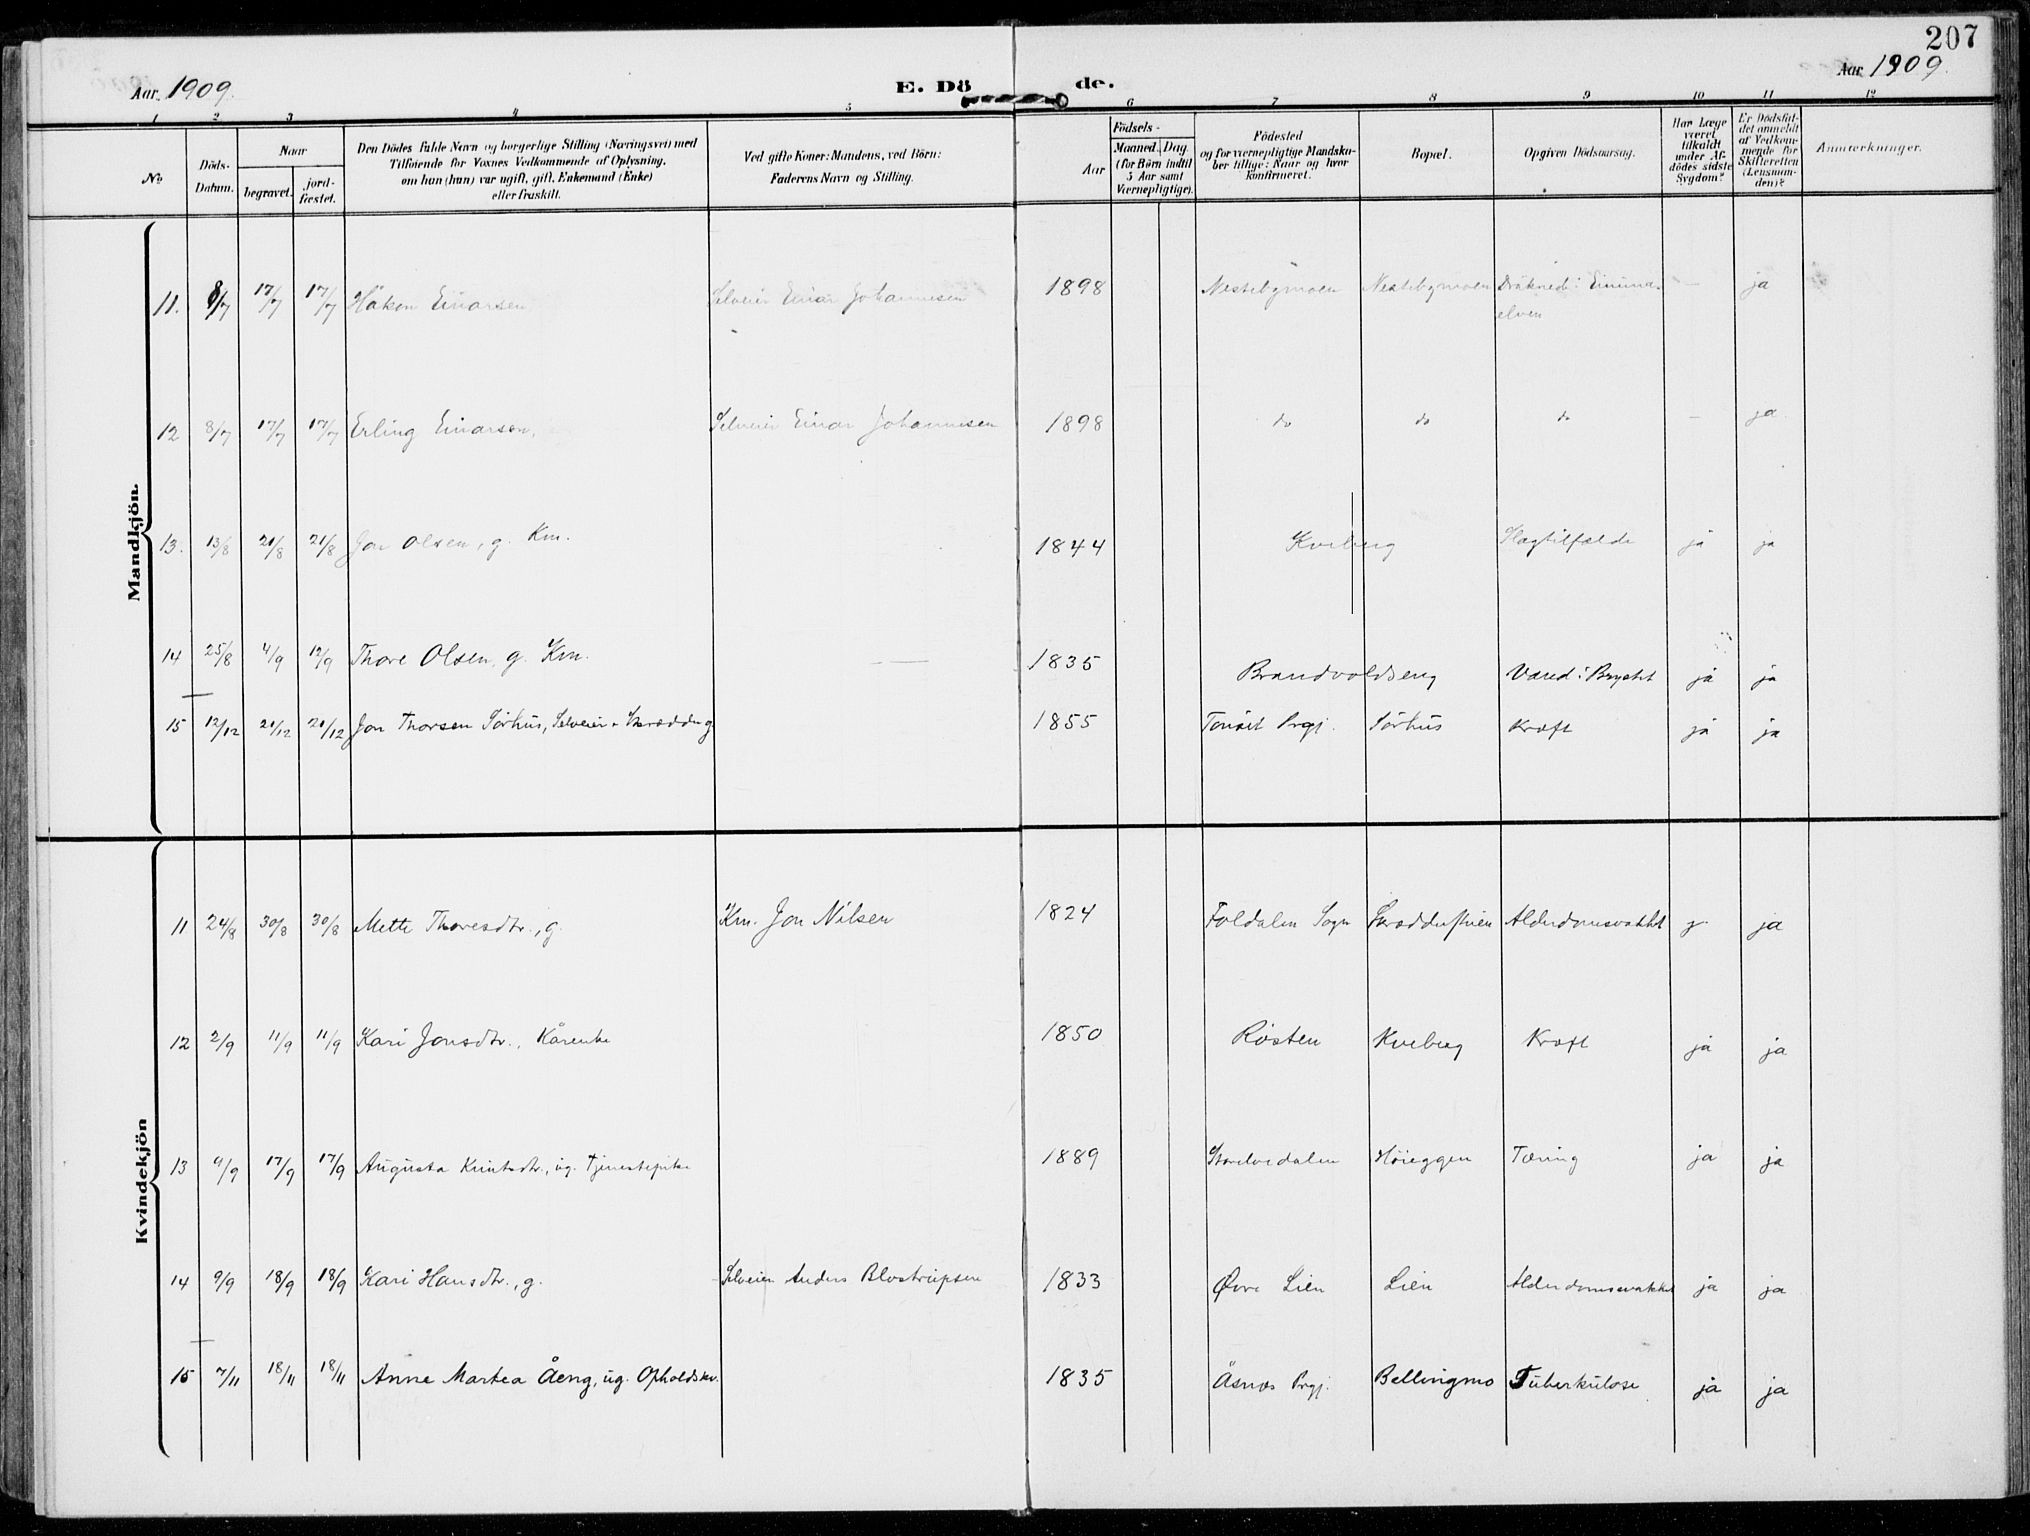 207
Aar 1909.
E. Dö de.
Aar 1909.
1 2 3 4 5 6 7 8 9 10 11 12
No
Döds-Datum.
Naar
begravet. jord-fæstet.
Den Dödes fulde Navn og borgerlige Stilling (Næringsvei) med
Tilföiende for Voxnes Vedkommende af Oplysning,
om han (hun) var ugift, gift, Enkemand (Enke)
eller fraskilt.
Ved gifte Koner: Mandens, ved Börn:
Faderens Navn og Stilling.
Födsels-
Aar Maaned. Dag.
(for Börn indtil
5 Aar samt
Værnepligtige).
Födested
og for værnepligtige Mandska-
ber tillige: Naar og hvor
konfirmeret.
Bopæl.
Opgiven Dödsaarsag.
Har Læge
været
tilkaldt
under Af-
dödes sidste
Sygdom?
Er Dödsfal-
det anmeldt
af Vedkom-
mende for
Skifteretten
(Lensman-
den)?
Anmerkninger.
Mandkjön.
11. 8/7 17/7 17/7 Håkon Einarsen Selveier Einar Johannesen 1898 Nestebymoen Nestebymoen Druknet i Einuna- — ja
elven
12 8/7 17/7 17/7 Erling Einarsen, Selveier Einar Johannesen 1898 do do do — ja
13. 13/8 21/8 21/8 Jon Olsen, g. Km. 1844 Kveberg Slagtilfælde ja ja
14 25/8 4/9 12/9 Thore Olsen, g. Km. — 1835 Brandvoldseng Vand i Brystet ja ja
15 12/12 21/12 21/12 Jon Thorsen Sörhus, Selveier + Skrædder g 1855 Tönset Prgj. Sörhus Kræft ja ja
Kvindekjön
11 24/8 30/8 30/8 Mette Thoresdtr., g. Km. Jon Nilsen 1824 Foldalen Sogn Skrædderstuen Alderdomssvakhet ja
12 2/9 11/9 11/9 Kari Jonsdtr., Kårenke 1850 Rösten Kveberg Kræft ja ja
13 9/9 17/9 17/9 Augusta Knutsdtr., ug. Tjenestepike 1889 Storelvedalen Höieggen Tæring ja ja
14 9/9 18/9 18/9 Kari Hansdtr., g. Selveier Anders Blostrupsen 1833 Øvre Lien Lien Alderdomssvakhet ja ja
15 7/11 18/11 18/11 Anne Martea Åeng, ug. Opholdskv. 1835 Åsnæs Prgj. Bellingmo Tuberkulose ja ja